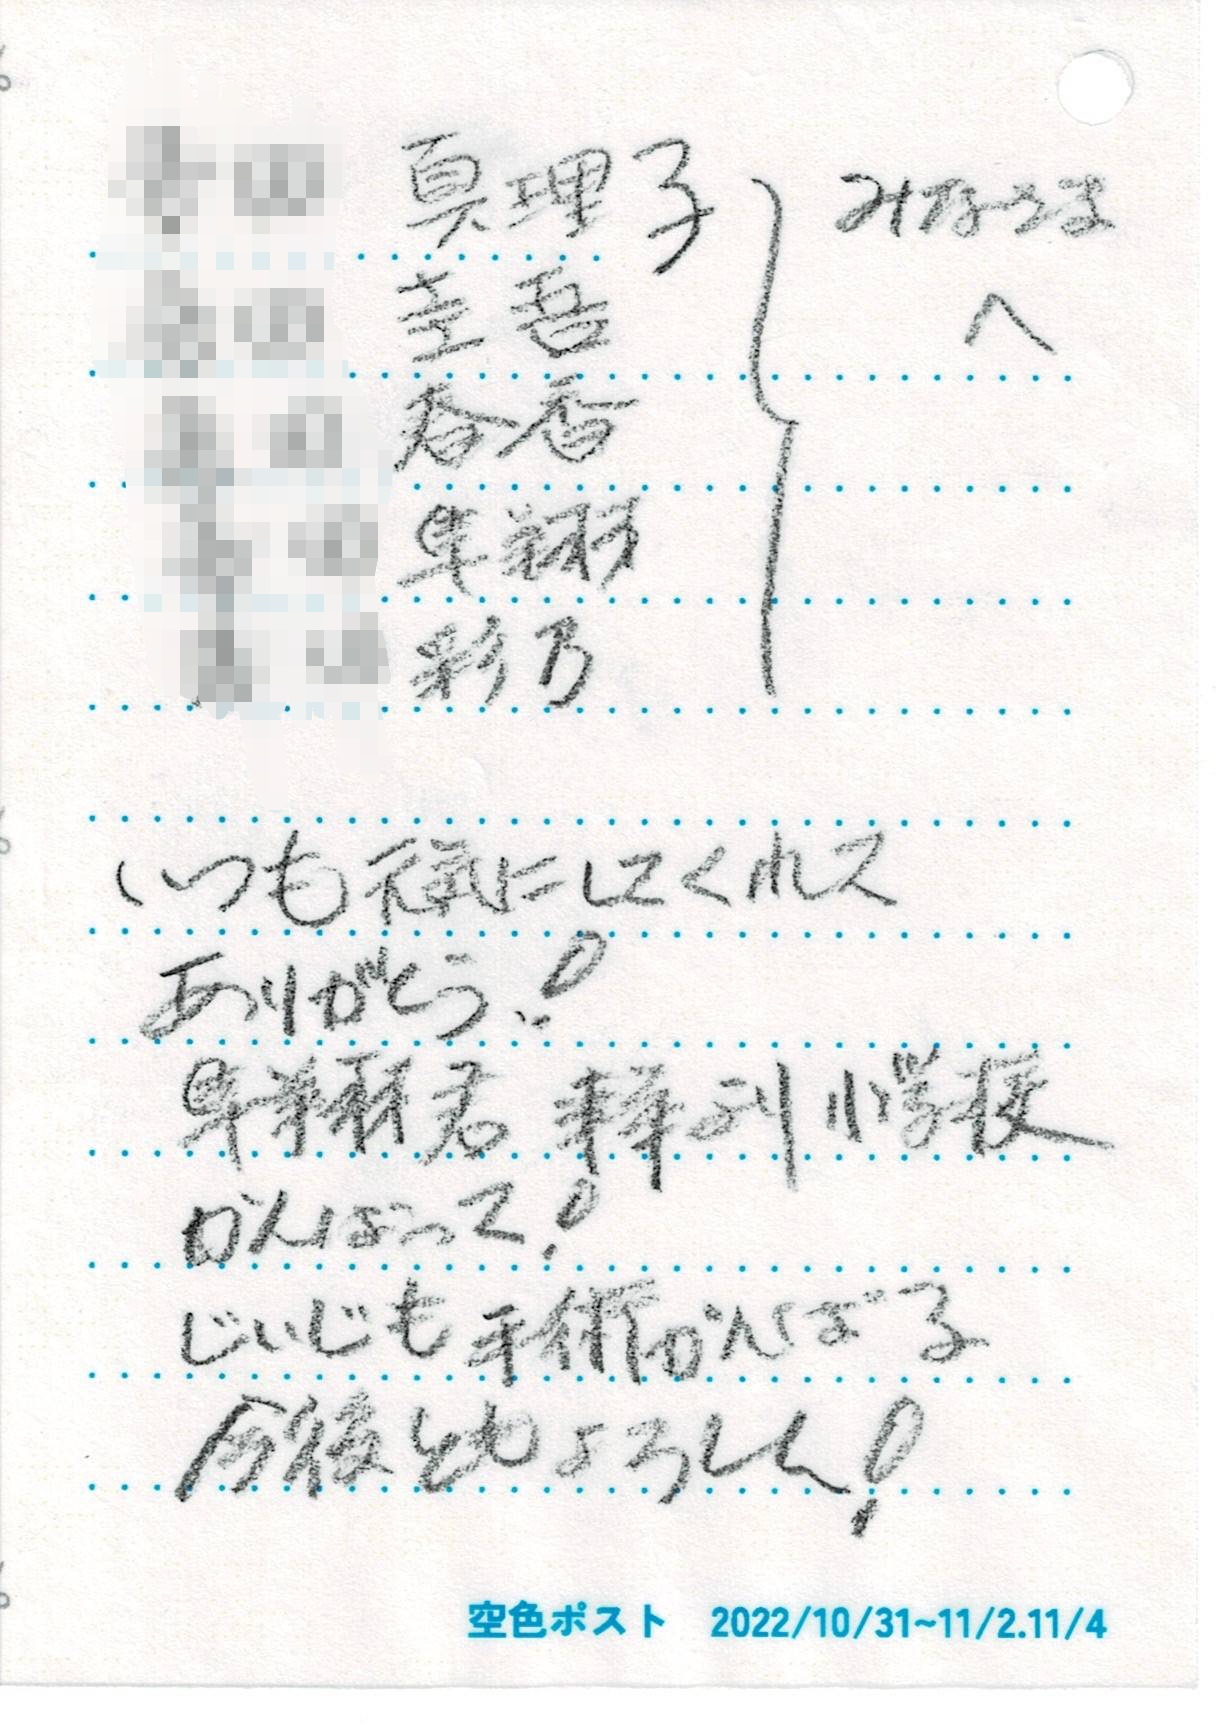 真理子
圭吾
春香
隼翔
彩乃
みなさま
へ
いつも元気にしてくれて
ありがとう!!
隼翔君 来年より小学校
がんばって!
じいじも手術がんばる
今後ともよろしく!
空色ポスト 2022/10/31~11/2.11/4